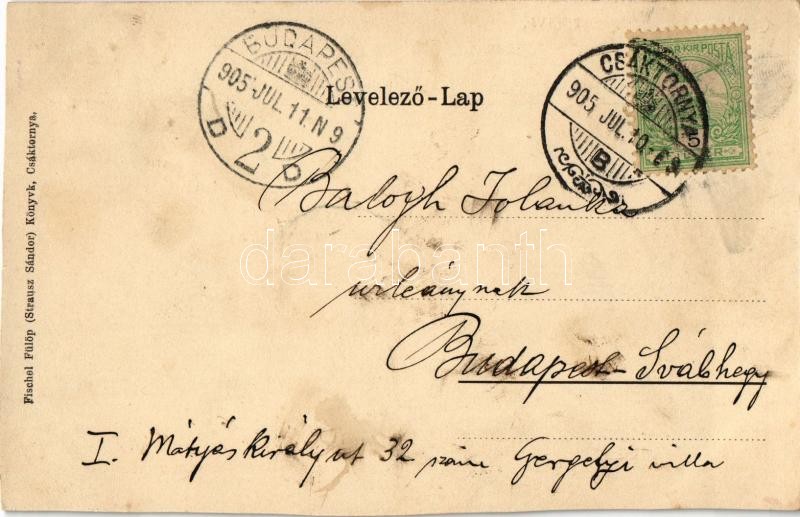 BUDAPEST
905 JUL. 11. N 9
D 2 D
Levelező-Lap
MAGY. KIR. POSTA
CSÁKTORNYA
905 JUL. 10.
B
5
Balogh Jolanka
urleánynak
Budapest-Svábhegy
I. Mátyás király ut 32 szám Gergelyi villa
Fischel Fülöp (Strausz Sándor) Könyvk, Csáktornya.
darabanth